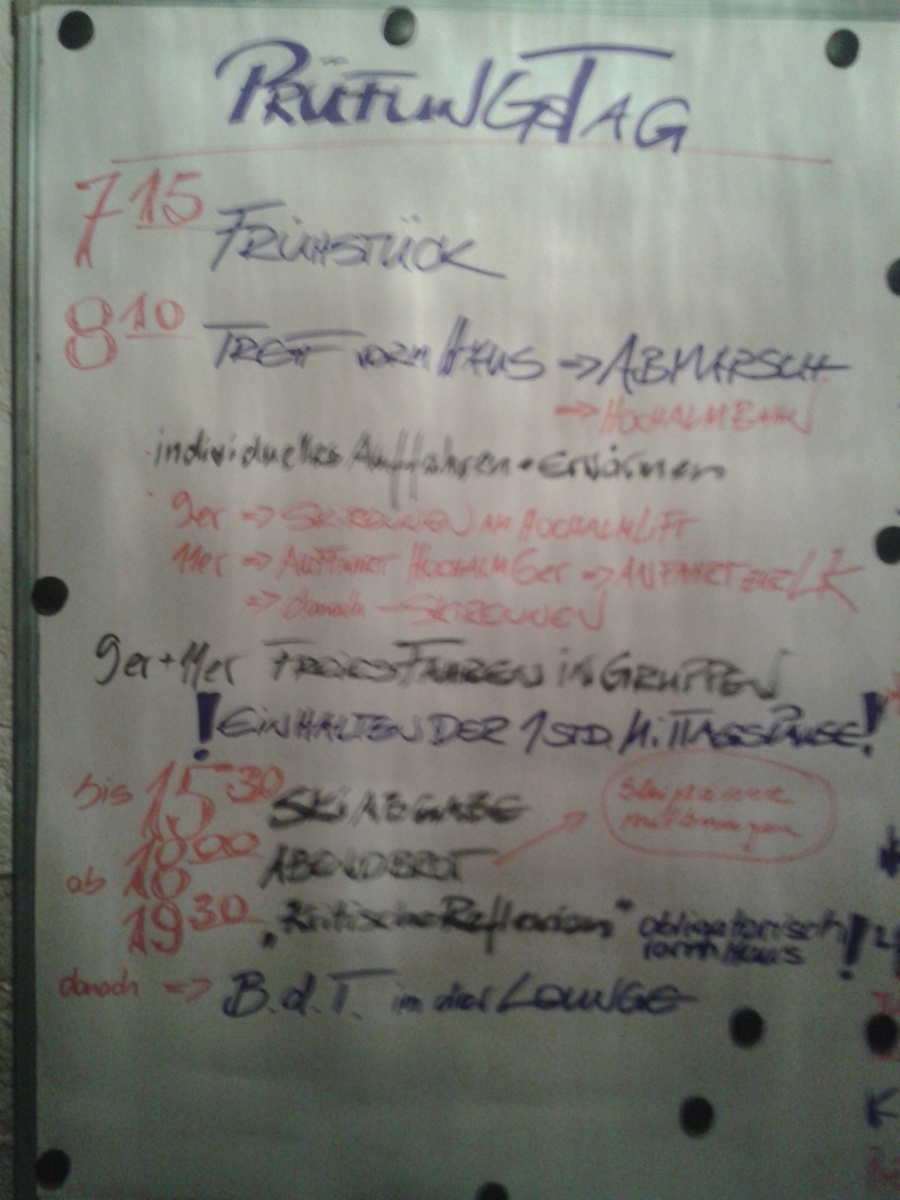 PRÜFUNGSTAG
7 15 FRÜHSTÜCK
8 10 TREFF VORM HAUS → ABMARSCH
→ HOCHALMBAHN
individuelles Auffahren + Erwärmen
9er → SKIRENNEN AM HOCHALMLIFT
11er → AUFFAHRT HOCHALM 6er → ANFAHRT ZUR LK
→ danach SKIRENNEN
9er + 11er FREIES FAHREN IN GRUPPEN
! EINHALTEN DER 1 STD. MITTAGSPAUSE!
bis 15 30 SKIABGABE
ab 18 00 ABENDBROT
mitbringen
19 30 „Kritische Reflexion“ obligatorisch !
vorm Haus
danach → B.d.T. in der LOUNGE